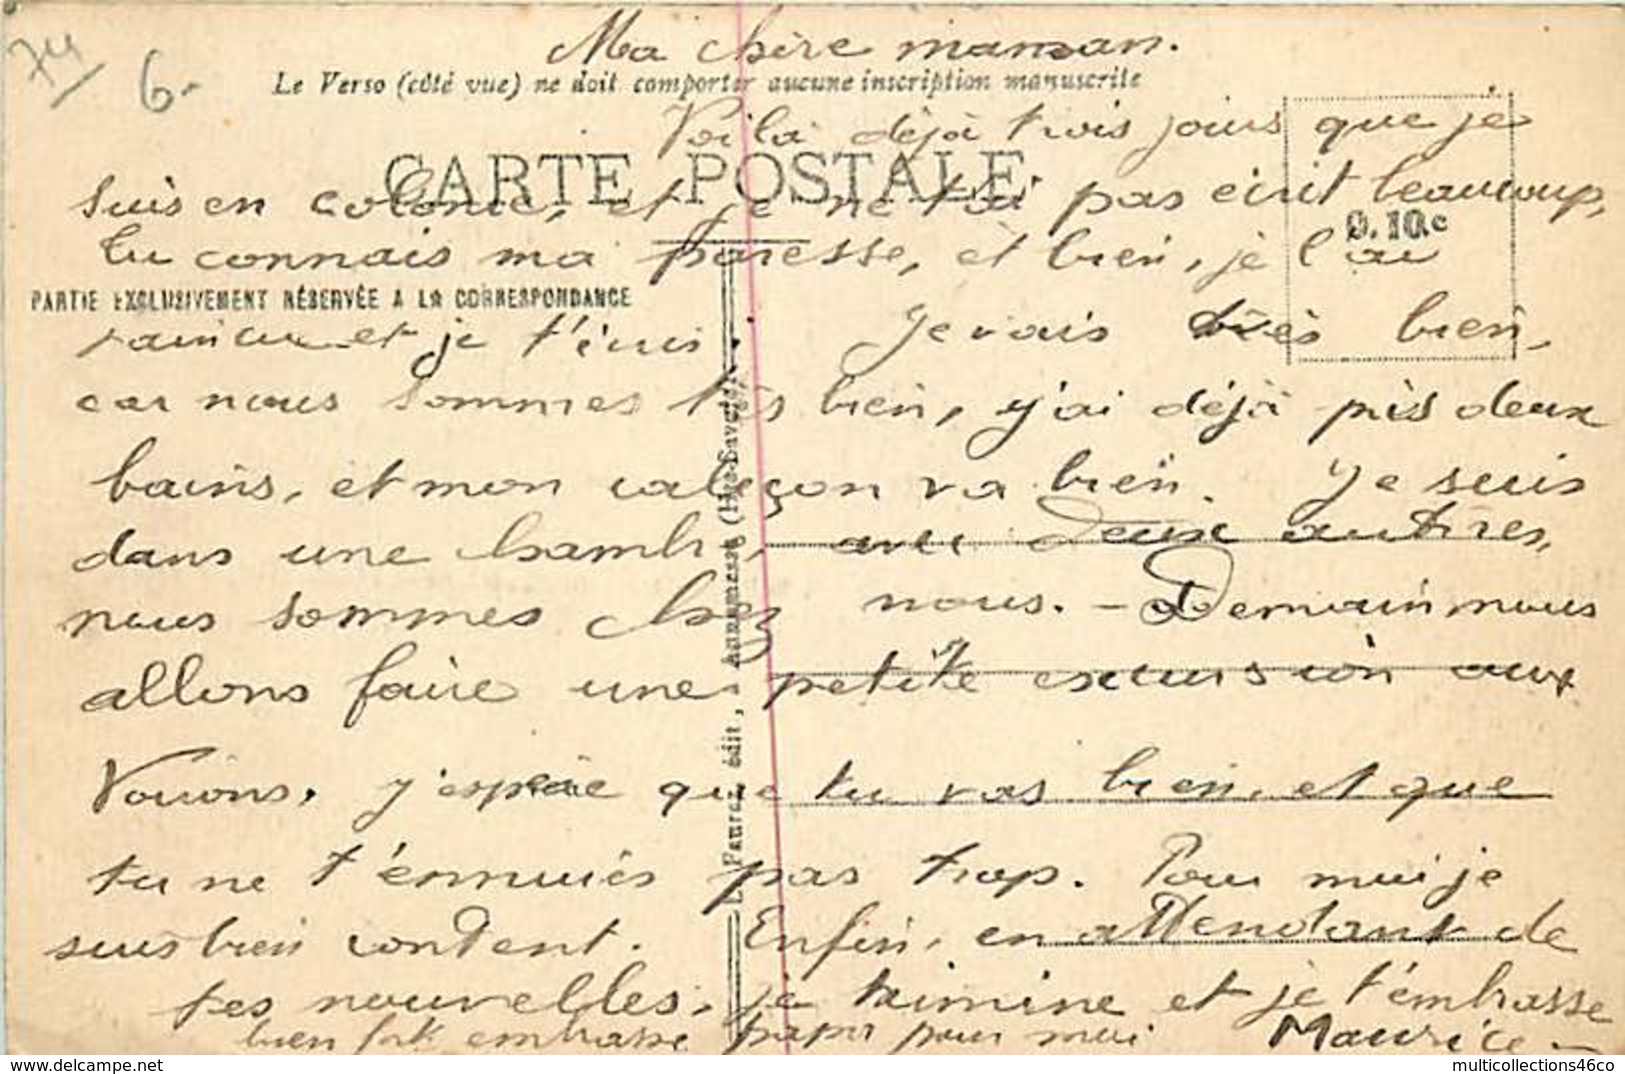 74
6.-
Ma chère maman.
Le Verso (côté vue) ne doit comporter aucune inscription manuscrite
Voilà déjà trois jours que je
CARTE POSTALE
suis en colonie, et je ne t'ai pas écrit beaucoup,
0.10c
tu connais ma paresse, et bien, je l'ai
PARTIE EXCLUSIVEMENT RÉSERVÉE A LA CORRESPONDANCE
vaincue et je t'écris. Je vais très bien,
car nous sommes très bien, j'ai déjà pris deux
bains, et mon caleçon va bien. Je suis
dans une chambre, avec deux autres,
nous sommes chez nous. - Demain nous
allons faire une petite excursion aux
Voirons. J'espère que tu vas bien, et que
tu ne t'ennuies pas trop. Pour moi je
suis bien content. Enfin, en attendant de
tes nouvelles, je termine et je t'embrasse
bien fort embrasse papa pour moi Maurice
édit., Annemasse (Hte-Savoie).
multicollections46co
https://www.delcampe.net